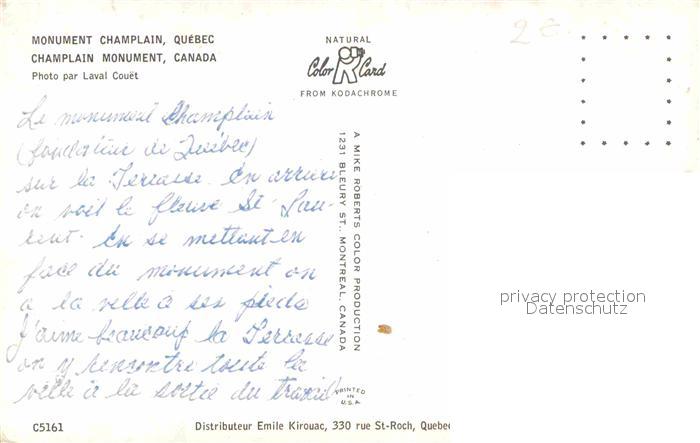 MONUMENT CHAMPLAIN, QUÉBEC
CHAMPLAIN MONUMENT, CANADA
Photo par Laval Couët
NATURAL
Color Card
FROM KODACHROME
2 €
Le monument Champlain
(fondateur de Québec)
sur la Terrasse. En arrière
on voit le fleuve St-Lau-
rent. En se mettant en
face du monument on
a la ville à ses pieds
J'aime beaucoup la Terrasse
on y rencontre toute la
ville à la sortie du travail
A MIKE ROBERTS COLOR PRODUCTION
1231 BLEURY ST., MONTREAL, CANADA
privacy protection
Datenschutz
PRINTED
IN
U.S.A.
C5161
Distributeur Emile Kirouac, 330 rue St-Roch, Quebec